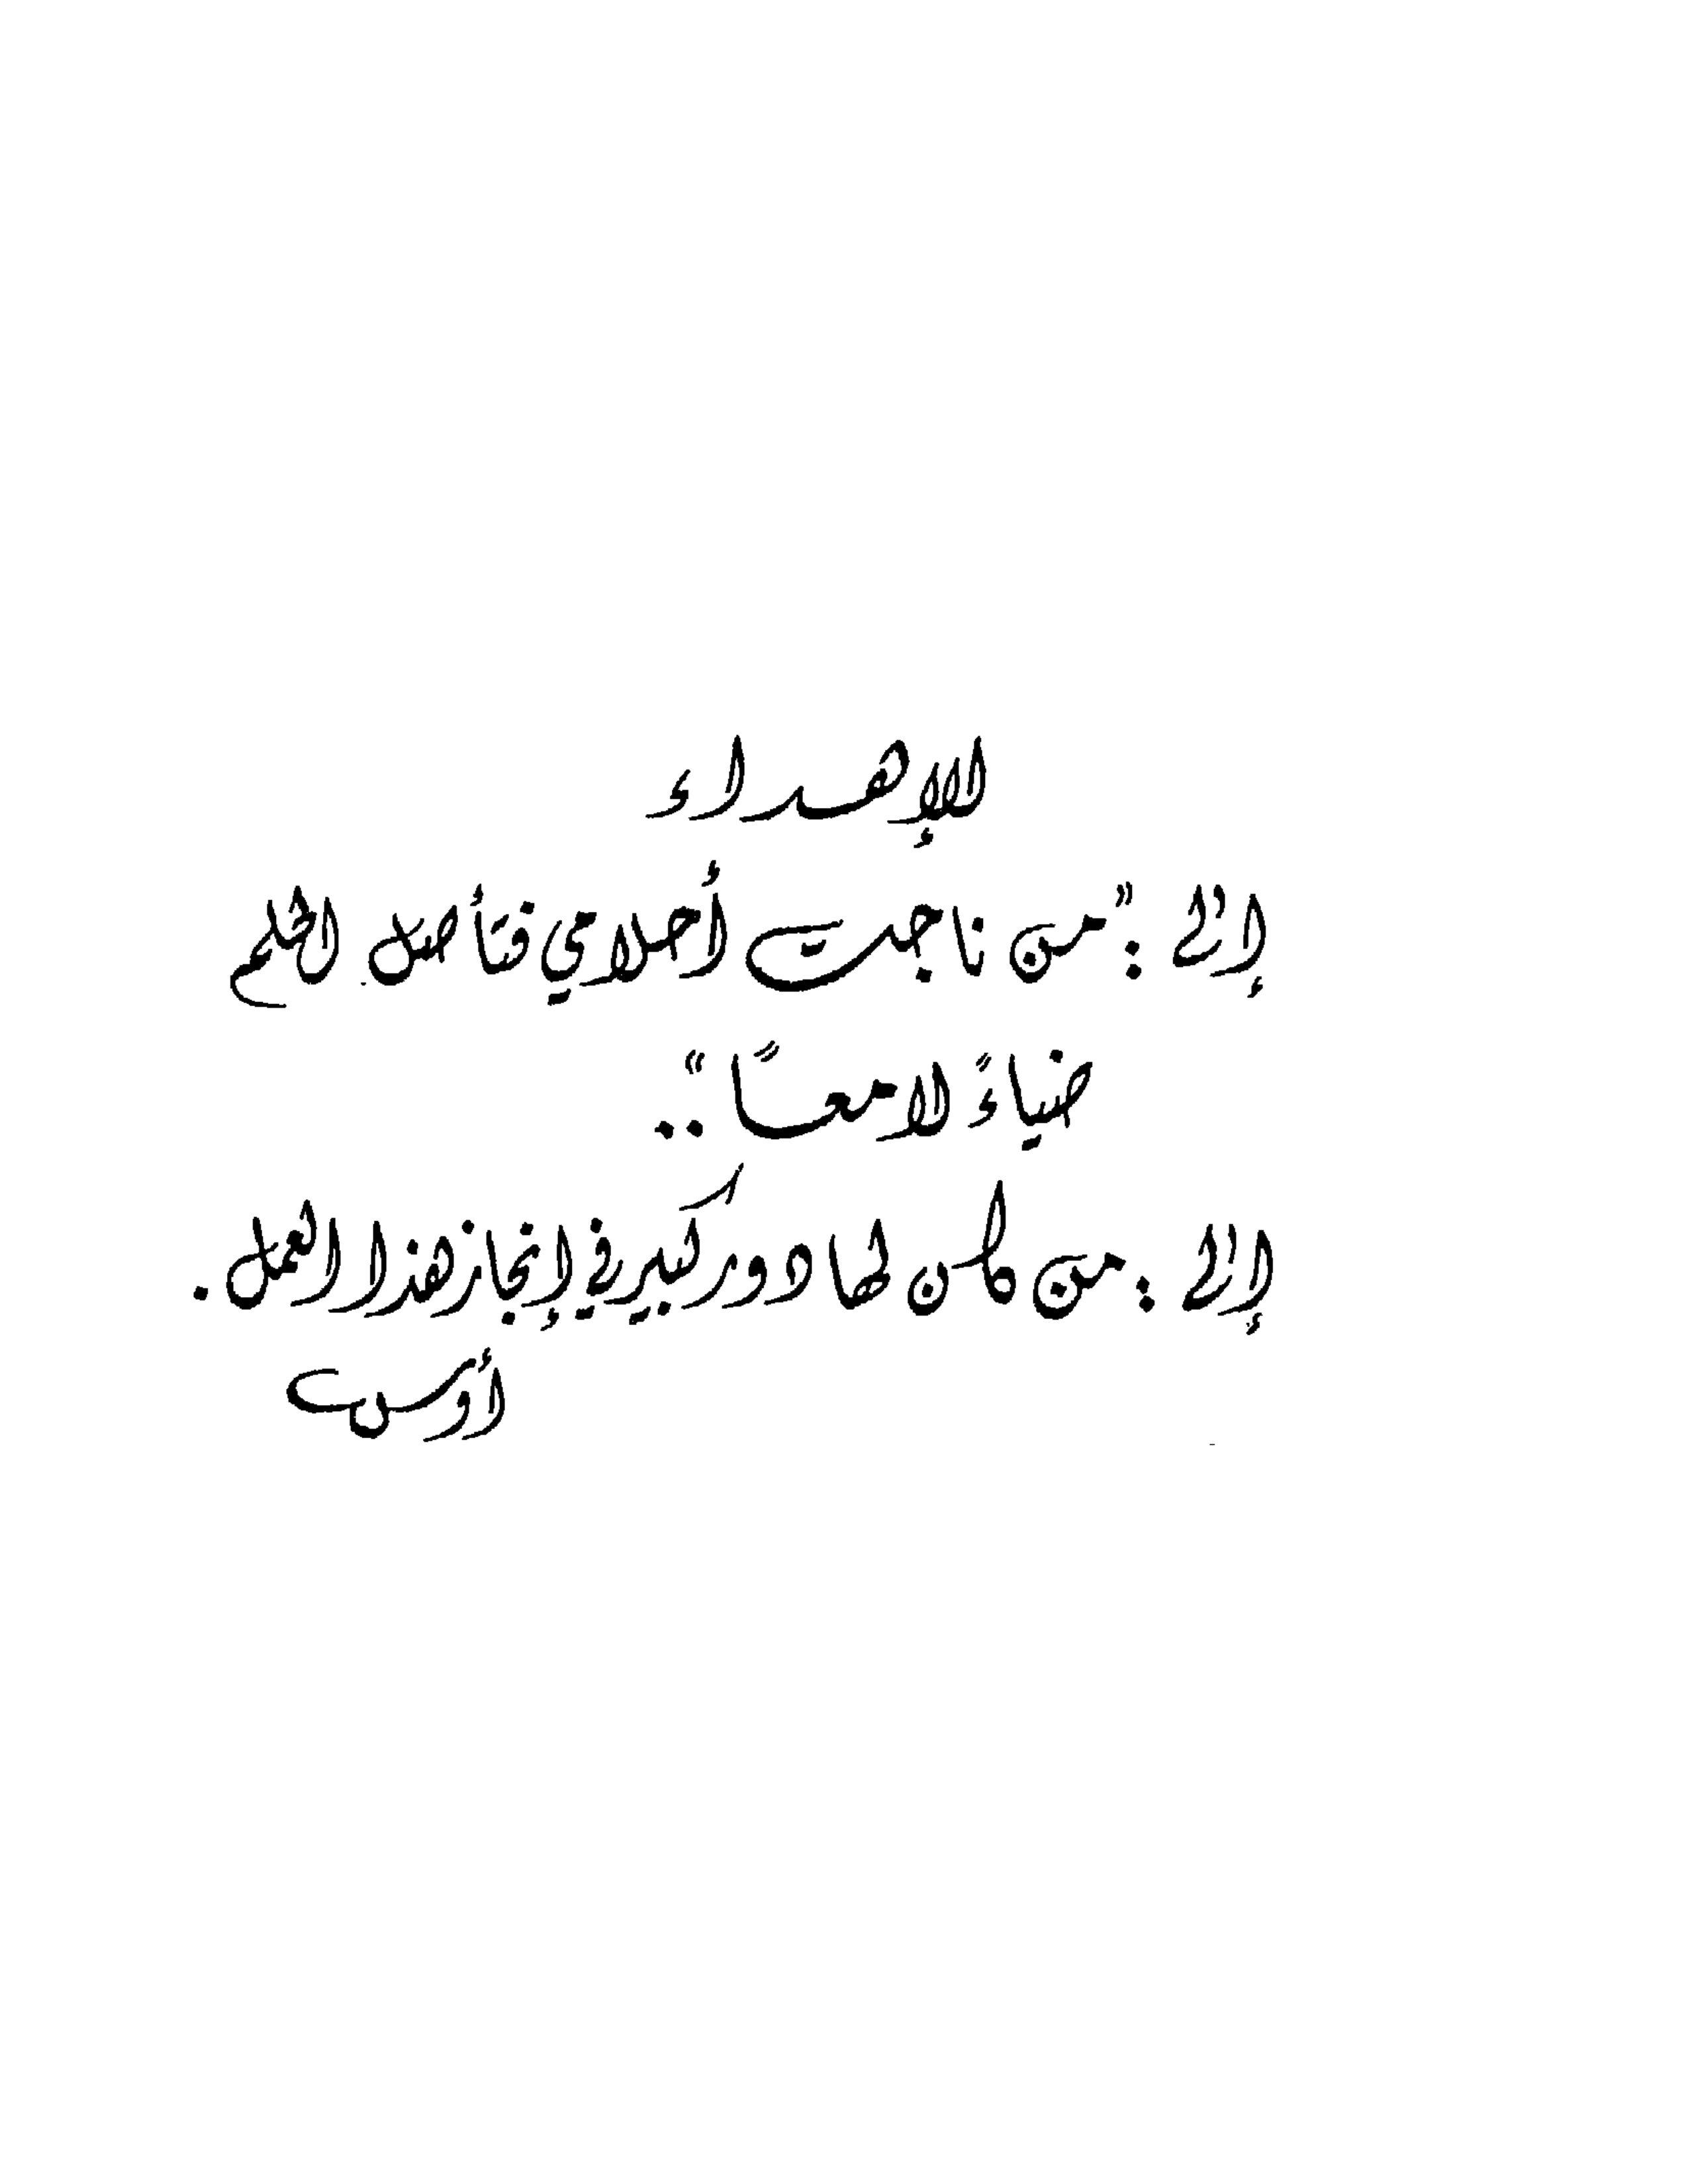 الإهداء
إلى : "من ناجت أحلامي فتأصل الحلم
ضياءً لامعاً" ..
إلى : من كان لها دور كبير في إنجاز هذا العمل .
أوس